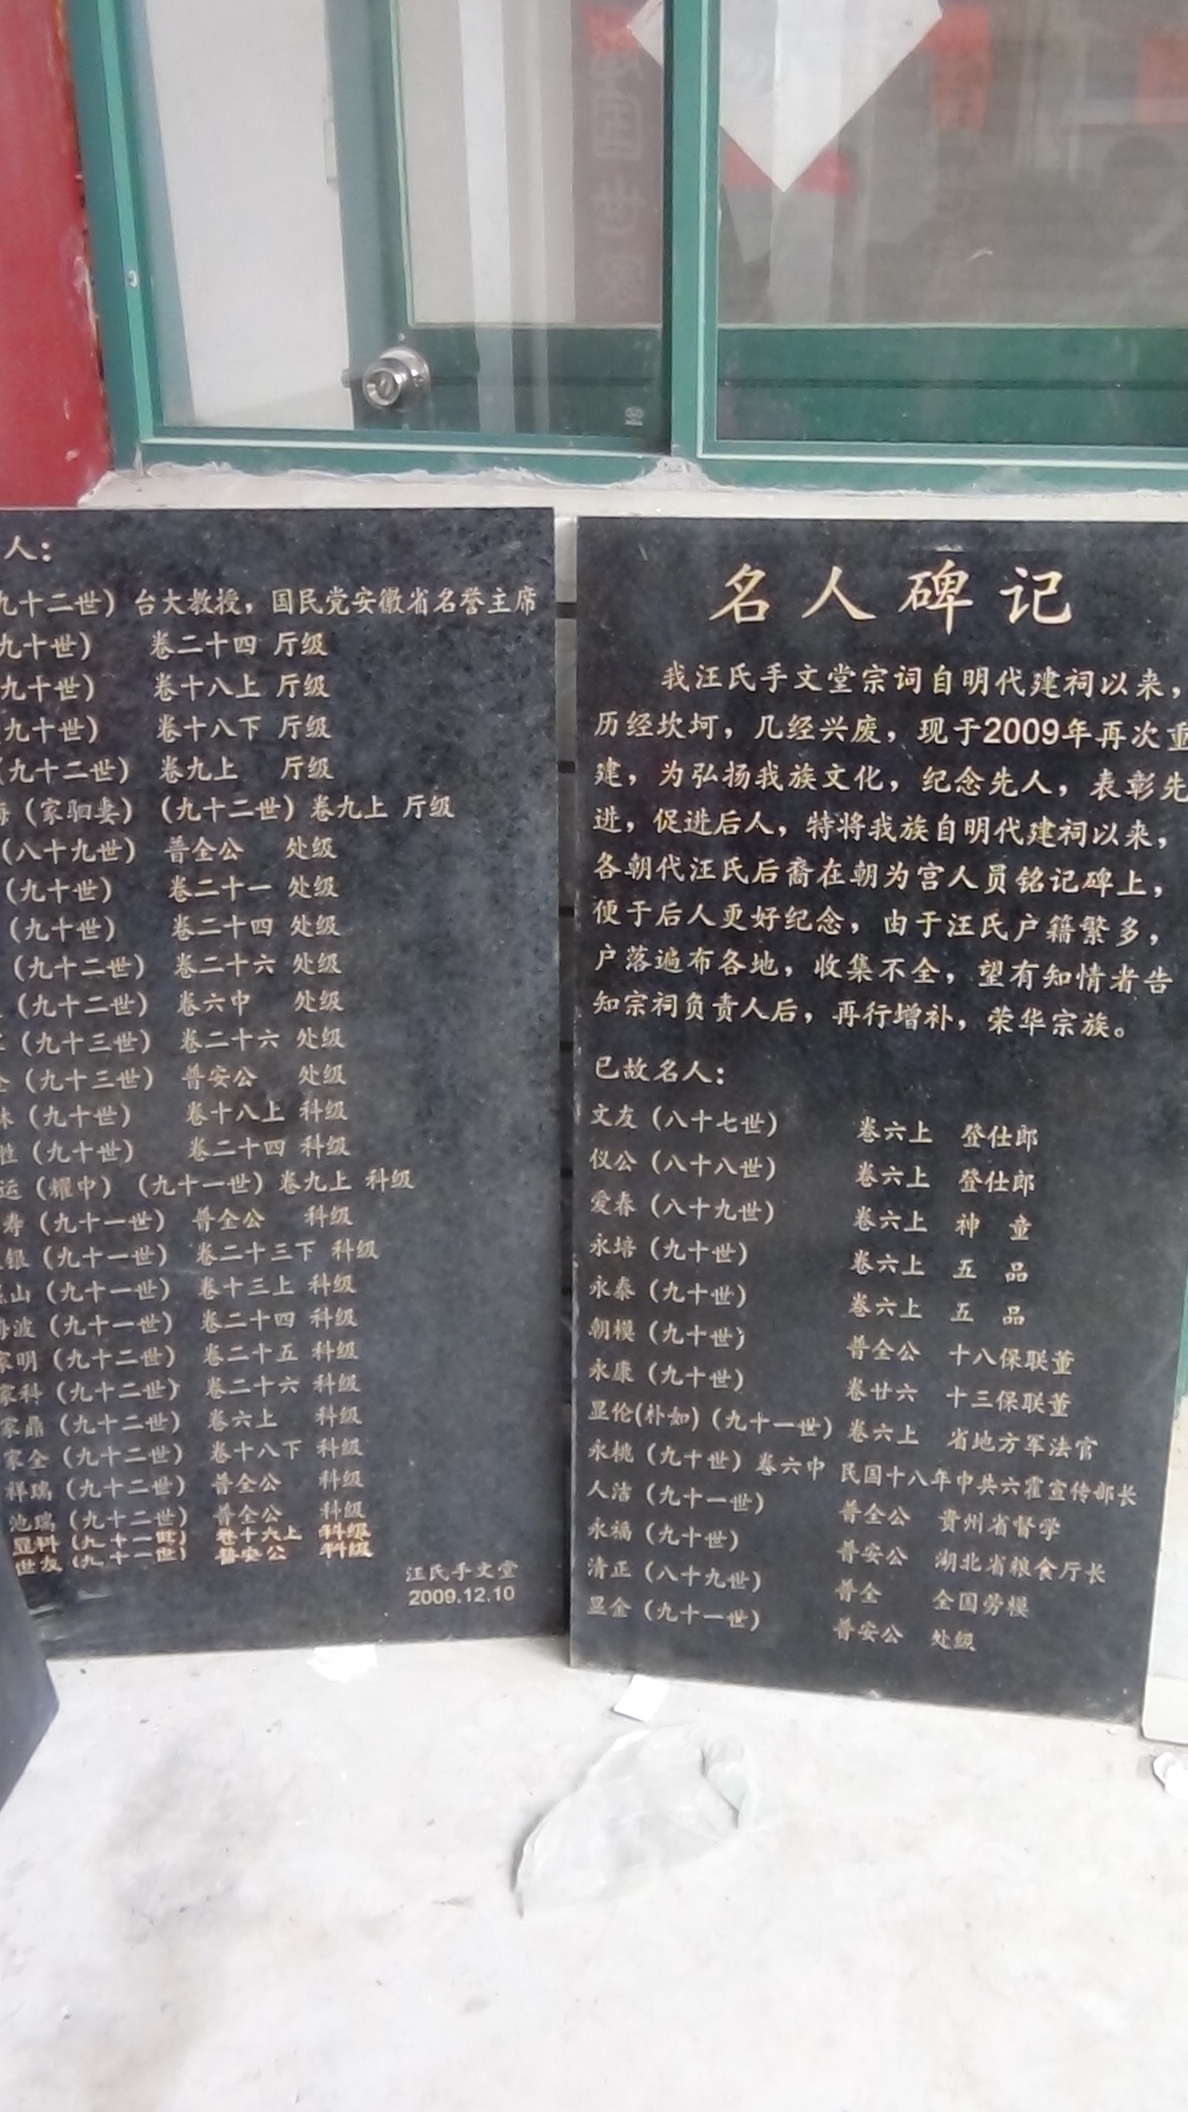 国世家
人：
九十二世）台大教授，国民党安徽省名誉主席
九十世） 卷二十四 厅级
九十世） 卷十八上 厅级
九十世） 卷十八下 厅级
（九十二世） 卷九上 厅级
（家驷妻）（九十二世）卷九上 厅级
（八十九世） 普全公 处级
（九十世） 卷二十一 处级
（九十世） 卷二十四 处级
（九十二世） 卷二十六 处级
（九十二世） 卷六中 处级
（九十三世） 卷二十六 处级
（九十三世） 普安公 处级
（九十世） 卷十八上 科级
（九十世） 卷二十四 科级
运（耀中）（九十一世）卷九上 科级
寿（九十一世） 普全公 科级
银（九十一世） 卷二十三下 科级
山（九十一世） 卷十三上 科级
波（九十一世） 卷二十四 科级
家明（九十二世） 卷二十五 科级
家科（九十二世） 卷二十六 科级
家鼎（九十二世） 卷六上 科级
家全（九十二世） 卷十八下 科级
祥瑞（九十二世） 普全公 科级
池瑞（九十二世） 普全公 科级
显科（九十一世） 卷十六上 科级
世友（九十一世） 普安公 科级
汪氏手文堂
2009.12.10
名人碑记
我汪氏手文堂宗词自明代建祠以来，
历经坎坷，几经兴废，现于2009年再次重
建，为弘扬我族文化，纪念先人，表彰先
进，促进后人，特将我族自明代建祠以来，
各朝代汪氏后裔在朝为宫人员铭记碑上，
便于后人更好纪念，由于汪氏户籍繁多，
户落遍布各地，收集不全，望有知情者告
知宗祠负责人后，再行增补，荣华宗族。
已故名人：
文友（八十七世） 卷六上 登仕郎
仪公（八十八世） 卷六上 登仕郎
爱春（八十九世） 卷六上 神童
永培（九十世） 卷六上 五品
永泰（九十世） 卷六上 五品
朝模（九十世） 普全公 十八保联董
永康（九十世） 卷廿六 十三保联董
显伦(朴如)（九十一世） 卷六上 省地方军法官
永桃（九十世）卷六中 民国十八年中共六霍宣传部长
人洁（九十一世） 普全公 贵州省督学
永福（九十世） 普安公 湖北省粮食厅长
清正（八十九世） 普全 全国劳模
显金（九十一世） 普安公 处级